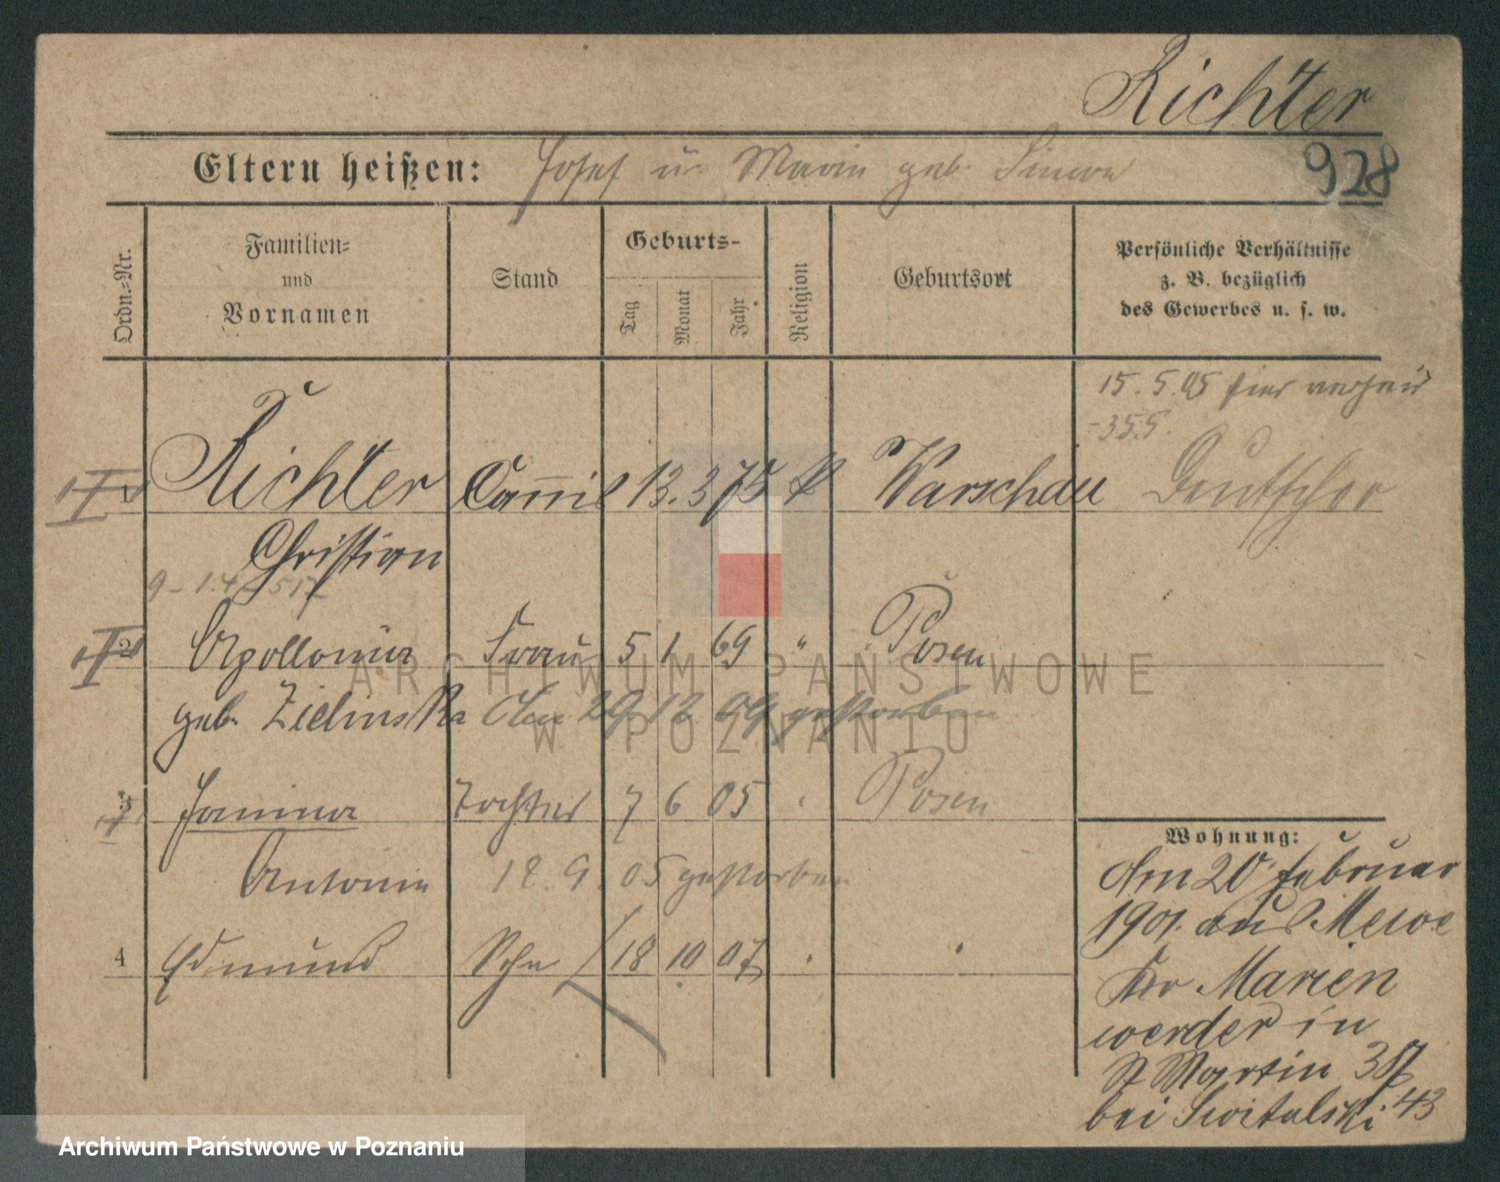 Richter
928
Eltern heißen: Josef u. Maria geb.
Ordn.-Nr.
Familien-
und
Vornamen
Stand
Geburts-
Tag
Monat
Jahr
Religion
Geburtsort
Persönliche Verhältnisse
z. B. bezüglich
des Gewerbes u. s. w.
15.5.05 hier
1 Richter 13. 3 75 Warschau Deutscher
Christian
2 Apollonia Frau 5 1 69 " Posen
geb. Zielinska Am 29 12 09 gestorben
3 Janina Tochter 7 6 05 Posen
Antonie 18. 9. 05 gestorben
4 Edmund Sohn 18 10 07
Wohnung:
Am 20 Februar
1901. aus Mewe
Kr Marien
werder in
St Martin
bei Switalski 43
ARCHIWUM PAŃSTWOWE
W POZNANIU
Archiwum Państwowe w Poznaniu